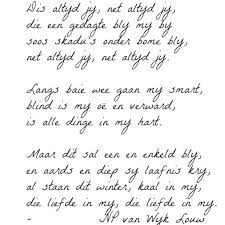 Dis altyd jy, net altyd jy,
die een gedagte bly my by
soos skadu's onder bome bly,
net altyd jy, net altyd jy.
Langs baie wee gaan my smart,
blind is my oë en verward,
is alle dinge in my hart.
Maar dit sal een en enkeld bly,
en aards en diep sy laafnis kry,
al staan dit winter, kaal in my,
die liefde in my, die liefde in my.
- NP van Wyk Louw